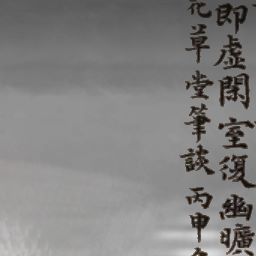 即虛閑室復幽曠
花草堂筆談丙申